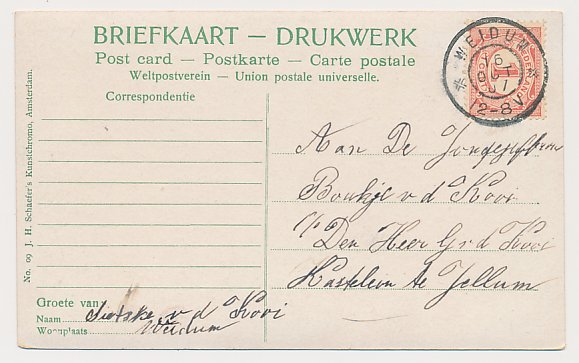 BRIEFKAART — DRUKWERK
Post card — Postkarte — Carte postale
Weltpostverein — Union postale universelle.
Correspondentie
WEIDUM
12-8V
NEDERLAND
1
Aan De
Boukje v d Kooi
Den Heer G v d Kooi
Kastelein te Jellum
Groete van
Naam Sietske v d Kooi
Woonplaats Weidum
No. 09 J. H. Schaefer's Kunstchromo, Amsterdam.